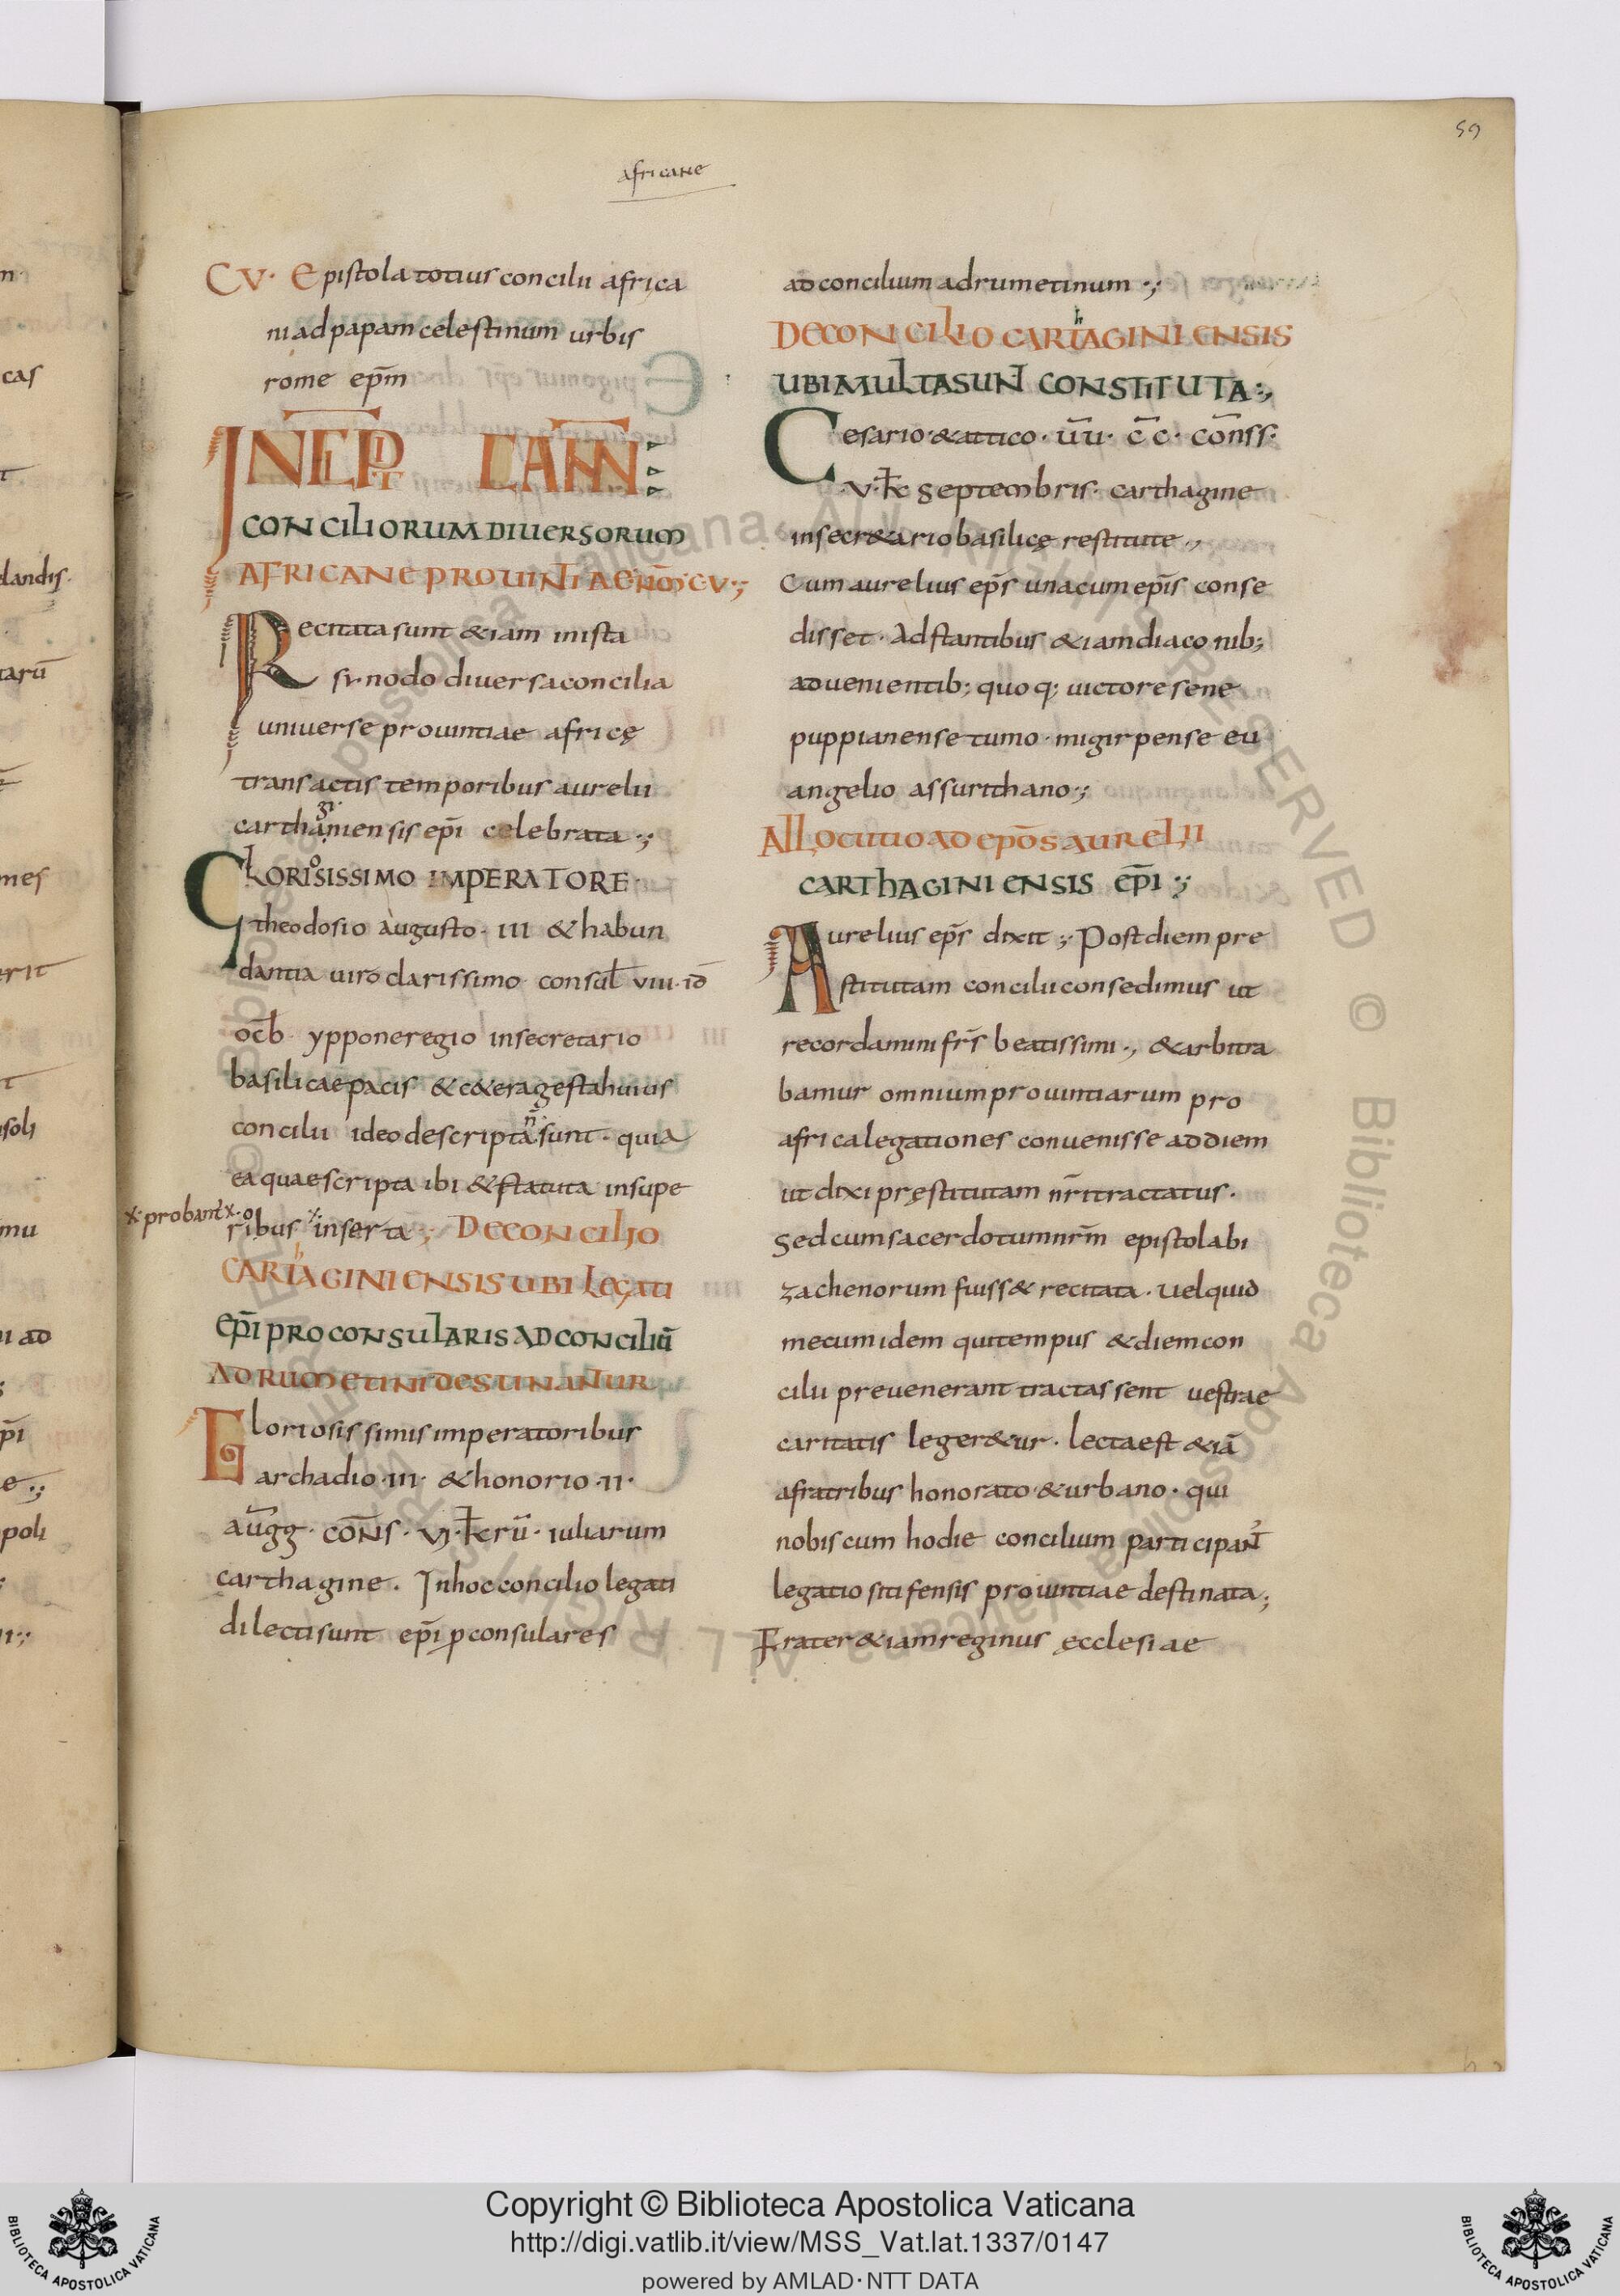 59
africane
CV· Epistola totius concilii africa
ni ad papam celestinum urbis
rome ep̄m
INCIP̄ CAN̄N̄
CONCILIORUM DIVERSORUM
AFRICANE PROVINTIAE NUM̄ CV·;
Recitata sunt &iam in ista
synodo diversa concilia
universe provintiae africę
transactis temporibus aurelii
carthaginiensis ep̄i celebrata ·;
GLORIOSISSIMO IMPERATORE·
theodosio augusto· III & habun
dantia viro clarissimo consul̄ VIII· id̄
oct̄b ypponeregio in secretario
basilicae pacis & c&era gesta huius
concilii ideo descripta n̄ sunt· quia
ea quae scripta ibi & statuta insupe
·x· probant̄ ·x· ribus ·x· inserta; DE CONCILIO
CARTHAGINIENSIS UBI LEGATI
EP̄I PROCONSULARIS AD CONCILIŪ
ADRUMETINI DESTINANTUR
Gloriosissimis imperatoribus
archadio ·III· & honorio ·II·
aūgg· cōns· VI· k̄l rū· iuliarum
carthagine. In hoc concilio legati
dilecti sunt ep̄i ꝓconsulares
ad concilium adrumetinum ·;
DE CONCILIO CARTHAGINIENSIS
UBI MULTA SUNT CONSTITUTA:,
Cesario·&attico· ūu· c̄c· cōnss·
·V· k̄l septembris· carthagine
in secr&ario basilicę restitute·,
Cum aurelius ep̄s una cum ep̄is conse
disset· Adstantibus &iam diaconib;
advenientib; quoq; victore sene
puppianense tumo· migirpense eu
angelio assurithano·;
ALLOCUTIO AD EPŌS AURELII
CARTHAGINIENSIS EP̄I·;
Aurelius ep̄s dixit·; Post diem pre
stitutam concilii consedimus ut
recordamini fr̄s beatissimi·, & arbitra
bamur omnium provintiarum pro
africa legationes convenisse ad diem
ut dixi pręstitutam nr̄i tractatus.
Sed cum sacerdotum nr̄m epistola bi
zachenorum fuiss& recitata. vel quid
mecum idem qui tempus & diem con
cilii prevenerant tractassent vestrae
caritatis leger&ur. lecta est &iā
a fratribus honorato & urbano· qui
nobiscum hodie concilium participant̄
legatio sitifensis provintiae destinata;
Frater &iam reginus ęcclesiae
Copyright © Biblioteca Apostolica Vaticana
http://digi.vatlib.it/view/MSS_Vat.lat.1337/0147
powered by AMLAD·NTT DATA
BIBLIOTECA APOSTOLICA VATICANA
BIBLIOTECA APOSTOLICA VATICANA